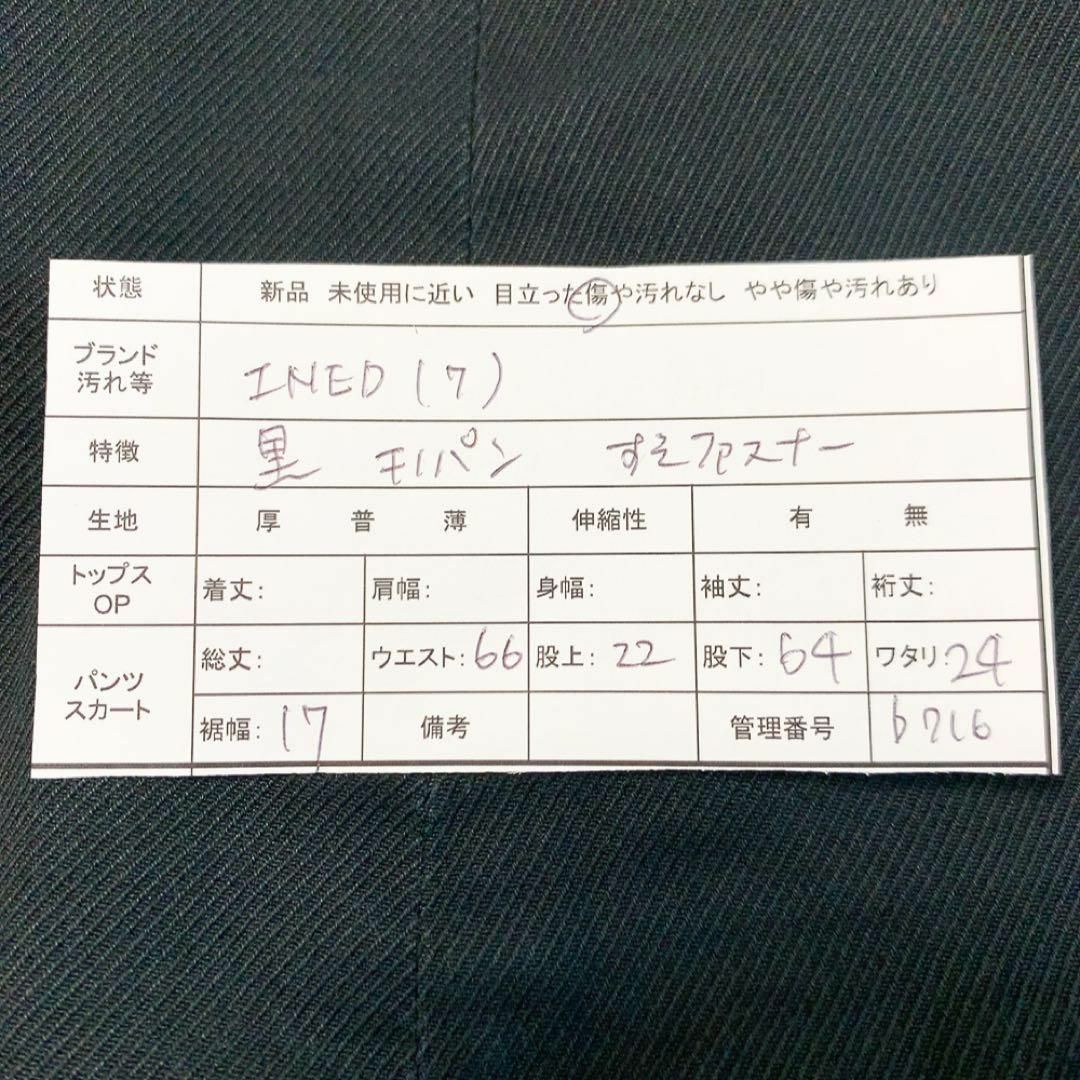 状態 新品 未使用に近い 目立った傷や汚れなし やや傷や汚れあり
ブランド
汚れ等 INED (7)
特徴 黒 モノパン すそファスナー
生地 厚 普 薄 伸縮性 有 無
トップス
OP 着丈: 肩幅: 身幅: 袖丈: 裄丈:
パンツ
スカート 総丈: ウエスト: 66 股上: 22 股下: 64 ワタリ: 24
裾幅: 17 備考 管理番号 b716